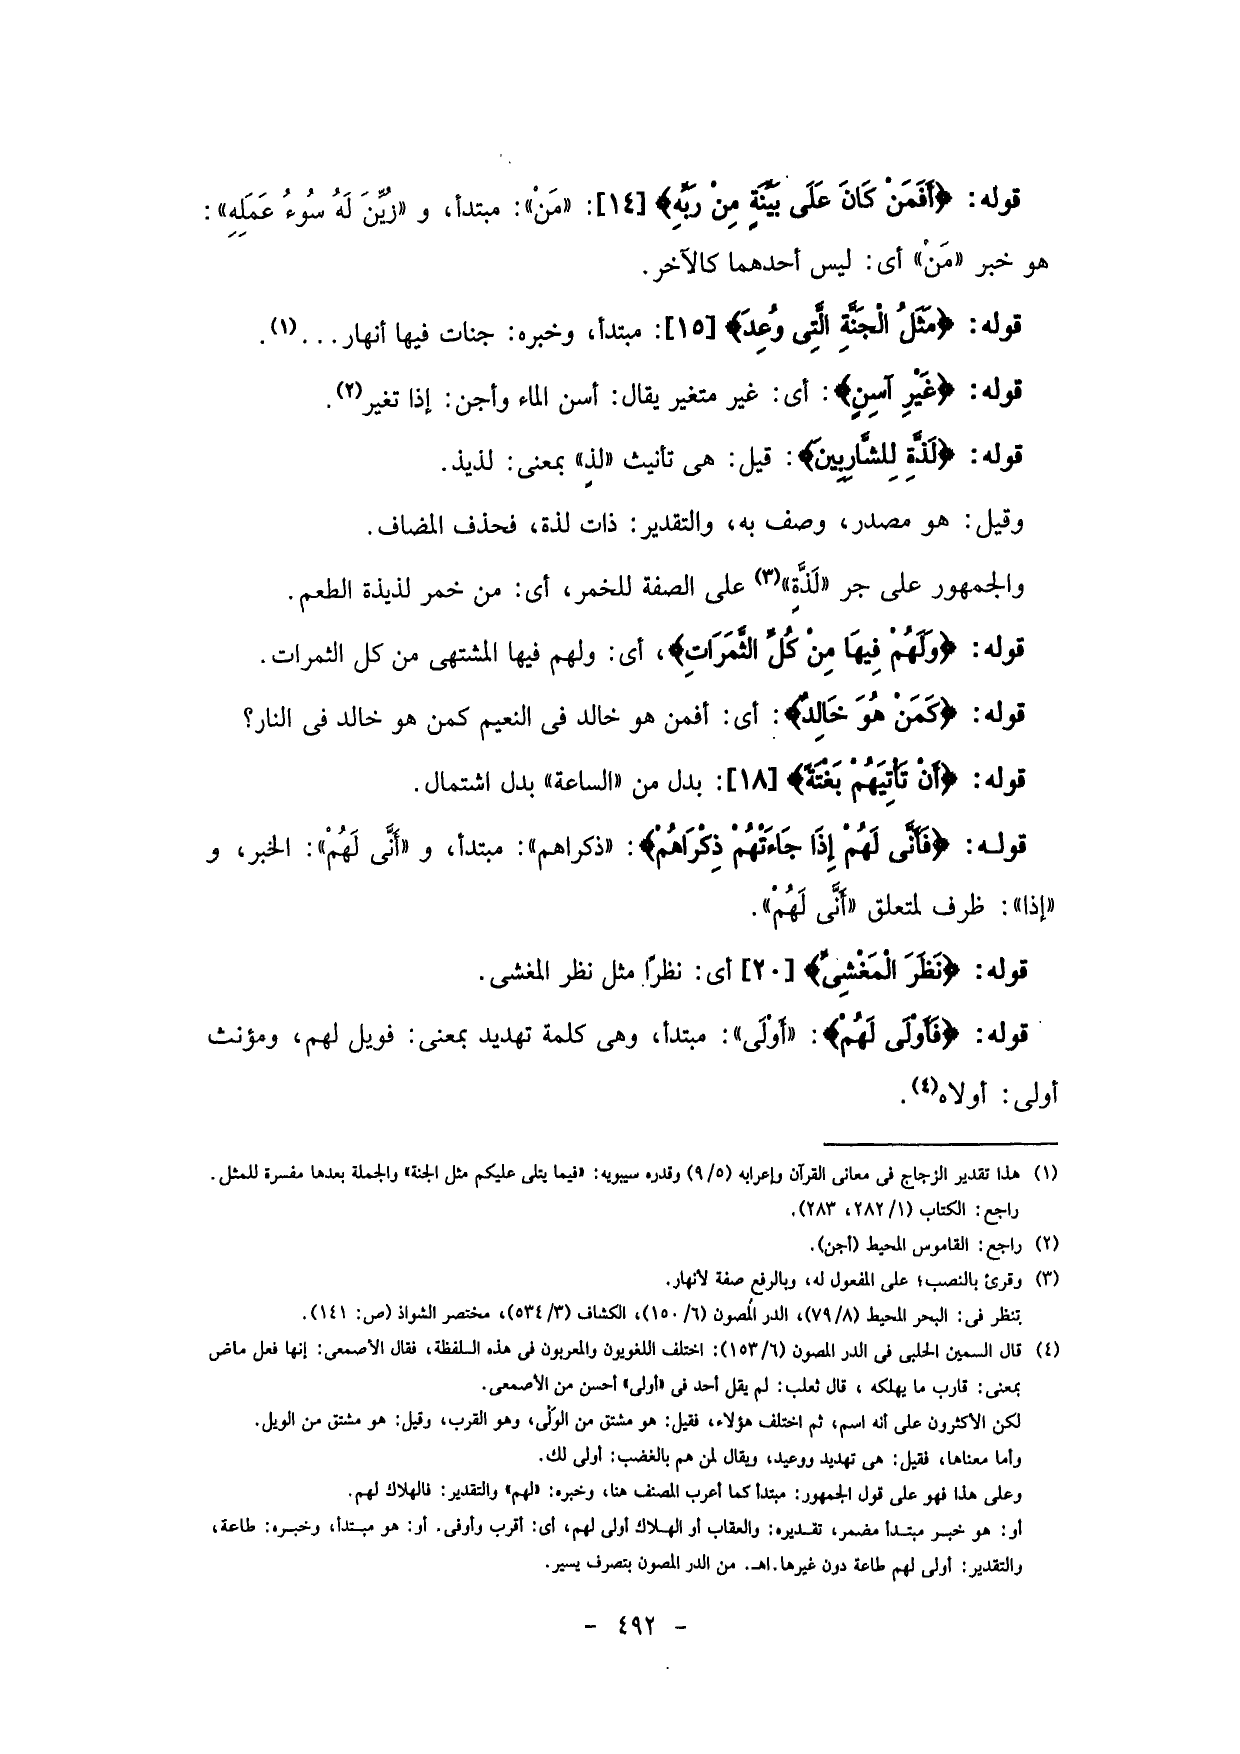 قوله: ﴿أَفَمَنْ كَانَ عَلَى بَيِّنَةٍ مِنْ رَبِّهِ﴾ [١٤]: «مَنْ»: مبتدأ، و «زُيِّنَ لَهُ سُوءُ عَمَلِهِ»:
هو خبر «مَنْ» أى: ليس أحدهما كالآخر.
قوله: ﴿مَثَلُ الْجَنَّةِ الَّتِى وُعِدَ﴾ [١٥]: مبتدأ، وخبره: جنات فيها أنهار...(١).
قوله: ﴿غَيْرِ آسِنٍ﴾: أى: غير متغير يقال: أسن الماء وأجن: إذا تغير(٢).
قوله: ﴿لَذَّةٍ لِلشَّارِبِينَ﴾: قيل: هى تأنيث «لذٍ» بمعنى: لذيذ.
وقيل: هو مصدر، وصف به، والتقدير: ذات لذة، فحذف المضاف.
والجمهور على جر «لَذَّةٍ»(٣) على الصفة للخمر، أى: من خمر لذيذة الطعم.
قوله: ﴿وَلَهُمْ فِيهَا مِنْ كُلِّ الثَّمَرَاتِ﴾، أى: ولهم فيها المشتهى من كل الثمرات.
قوله: ﴿كَمَنْ هُوَ خَالِدٌ﴾: أى: أفمن هو خالد فى النعيم كمن هو خالد فى النار؟
قوله: ﴿أَنْ تَأْتِيَهُمْ بَغْتَةً﴾ [١٨]: بدل من «الساعة» بدل اشتمال.
قوله: ﴿فَأَنَّى لَهُمْ إِذَا جَاءَتْهُمْ ذِكْرَاهُمْ﴾: «ذكراهم»: مبتدأ، و «أَنَّى لَهُمْ»: الخبر، و
«إذا»: ظرف لمتعلق «أَنَّى لَهُمْ».
قوله: ﴿نَظَرَ الْمَغْشِىِّ﴾ [٢٠] أى: نظرًا مثل نظر المغشى.
قوله: ﴿فَأَوْلَى لَهُمْ﴾: «أَوْلَى»: مبتدأ، وهى كلمة تهديد بمعنى: فويل لهم، ومؤنث
أولى: أولاه(٤).
(١) هذا تقدير الزجاج فى معانى القرآن وإعرابه (٥/ ٩) وقدره سيبويه: «فيما يتلى عليكم مثل الجنة» والجملة بعدها مفسرة للمثل.
راجع: الكتاب (١/ ٢٨٢، ٢٨٣).
(٢) راجع: القاموس المحيط (أجن).
(٣) وقرئ بالنصب؛ على المفعول له، وبالرفع صفة لأنهار.
تنظر فى: البحر المحيط (٨/ ٧٩)، الدر المُصون (٦/ ١٥٠)، الكشاف (٣/ ٥٣٤)، مختصر الشواذ (ص: ١٤١).
(٤) قال السمين الحلبى فى الدر المصون (٦/ ١٥٣): اختلف اللغويون والمعربون فى هذه اللفظة، فقال الأصمعى: إنها فعل ماض
بمعنى: قارب ما يهلكه ، قال ثعلب: لم يقل أحد فى «أولى» أحسن من الأصمعى.
لكن الأكثرون على أنه اسم، ثم اختلف هؤلاء، فقيل: هو مشتق من الوَلْى، وهو القرب، وقيل: هو مشتق من الويل.
وأما معناها، فقيل: هى تهديد ووعيد، ويقال لمن هم بالغضب: أولى لك.
وعلى هذا فهو على قول الجمهور: مبتدأ كما أعرب المصنف هنا، وخبره: «لهم» والتقدير: فالهلاك لهم.
أو: هو خبر مبتدأ مضمر، تقديره: والعقاب أو الهلاك أولى لهم، أى: أقرب وأوفى. أو: هو مبتدأ، وخبره: طاعة،
والتقدير: أولى لهم طاعة دون غيرها.اهـ. من الدر المصون بتصرف يسير.
- ٤٩٢ -